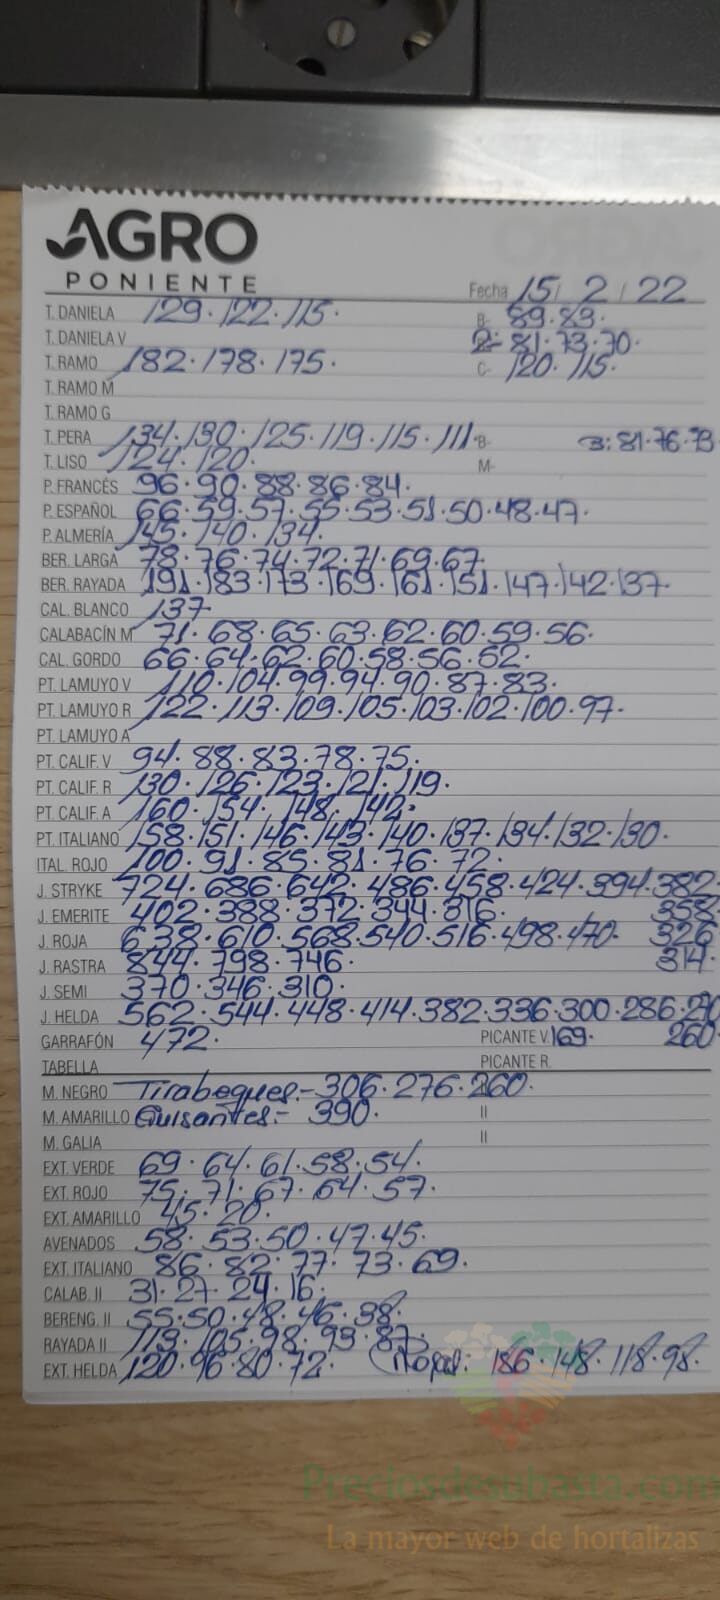 AGRO
PONIENTE
Fecha 15/ 2 / 22
T. DANIELA 129·122·115· B- 89·83·
T. DANIELA V 2- 81·73·70·
T. RAMO 182·178·175· C- 120·115·
T. RAMO M
T. RAMO G
T. PERA 134·130·125·119·115·111· B- B: 81·76·73
T. LISO 124·120· M-
P. FRANCÉS 96·90·88·86·84·
P. ESPAÑOL 66·59·57·55·53·51·50·48·47·
P. ALMERÍA 145·140·134·
BER. LARGA 78·76·74·72·71·69·67·
BER. RAYADA 191·183·173·169·161·151·147·142·137·
CAL. BLANCO 137
CALABACÍN M 71·68·65·63·62·60·59·56·
CAL. GORDO 66·64·62·60·58·56·52·
PT. LAMUYO V 110·104·99·94·90·87·83·
PT. LAMUYO R 122·113·109·105·103·102·100·97·
PT. LAMUYO A
PT. CALIF. V 94·88·83·78·75·
PT. CALIF. R 130·126·123·121·119·
PT. CALIF. A 160·154·148·142·
PT. ITALIANO 158·151·146·143·140·137·134·132·130·
ITAL. ROJO 100·91·85·81·76·72·
J. STRYKE 724·686·642·486·458·424·394·382·
J. EMERITE 402·388·372·344·316· 358
J. ROJA 638·610·568·540·516·498·470· 326
J. RASTRA 844·798·746· 314·
J. SEMI 370·346·310·
J. HELDA 562·544·448·414·382·336·300·286·270
GARRAFÓN 472· PICANTE V. 169· 260·
TABELLA PICANTE R.
M. NEGRO Tirabeques.- 306·276·260·
M. AMARILLO Guisantes:- 390· II
M. GALIA II
EXT. VERDE 69·64·61·58·54·
EXT. ROJO 75·71·67·64·57·
EXT. AMARILLO 45·20·
AVENADOS 58·53·50·47·45·
EXT. ITALIANO 86·82·77·73·69·
CALAB. II 31·27·24·16·
BERENG. II 55·50·48·46·38·
RAYADA II 113·105·98·93·87·
EXT. HELDA 120·96·80·72· 186·148·118·98·
Preciosdesubasta.com
La mayor web de hortalizas